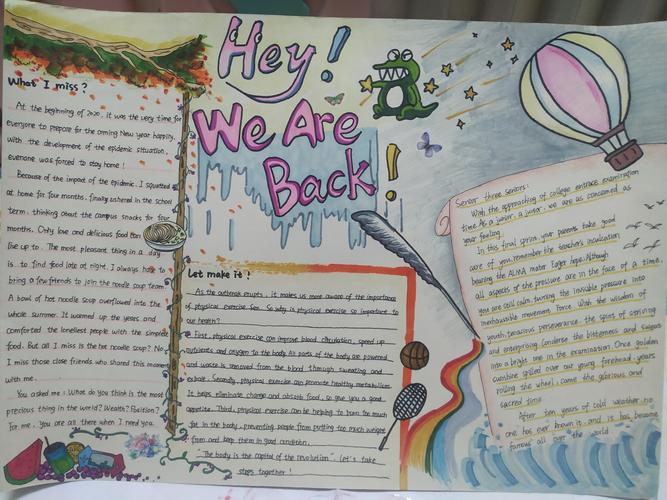 Hey!
We Are
Back!
What I miss?
At the beginning of 2020, it was the very time for
everyone to prepare for the coming New year happily,
with the development of the epidemic situation,
everyone was forced to stay home!
Because of the impact of the epidemic, I squatted
at home for four months, finally ushered in the school
term, thinking about the campus snacks for four
months. Only love and delicious food can
live up to. The most pleasant thing in a day
is to find food late at night. I always love to
bring a few friends to join the noodle soup team.
A bowl of hot noodle soup overflowed into the
whole summer. It warmed up the years and
comforted the loneliest people with the simplest
food. But all I miss is the hot noodle soup? No,
I miss those close friends who shared this moment
with me.
You asked me: What do you think is the most
precious thing in the world? Wealth? Position?
For me, you are all there when I need you.
Let make it!
As the outbreak erupts, it makes us more aware of the importance
of physical exercise. So why is physical exercise so important to
our health?
First, physical exercise can improve blood circulation, speed up
nutrients and oxygen to the body. All parts of the body are powered
and waste is removed from the blood through sweating and
exhale. Secondly, physical exercise can promote healthy metabolism.
It helps eliminate change and absorb food, so give you a good
appetite. Third, physical exercise can be helping to burn too much
fat in the body, preventing people from putting too much weight
from and keep them in good condition.
"The body is the capital of the revolution". Let's take
steps together!
Senior three seniors:
With the approaching of college entrance examination
time. As a junior, a junior we are as concerned as
your feeling.
In this final sprin your parents take good
care of you, remember the teacher's inculcation
bearing the ALMA mater Eager hope. Although
all aspects of the pressure are in the face of a time.
you are still calm, turning the invisible pressure into
inexhaustible movement Force. With the wisdom of
youth, tenacious perseverance, the spirit of striving
and enterprising. Condense the bitterness and swings
into a bright one in the examination. Once golden
sunshine spilled over our young forehead, years
rolling the wheel, came the glorious and
sacred time
After ten years of cold weather no
one has ever known it, and is has become
famous all over the world